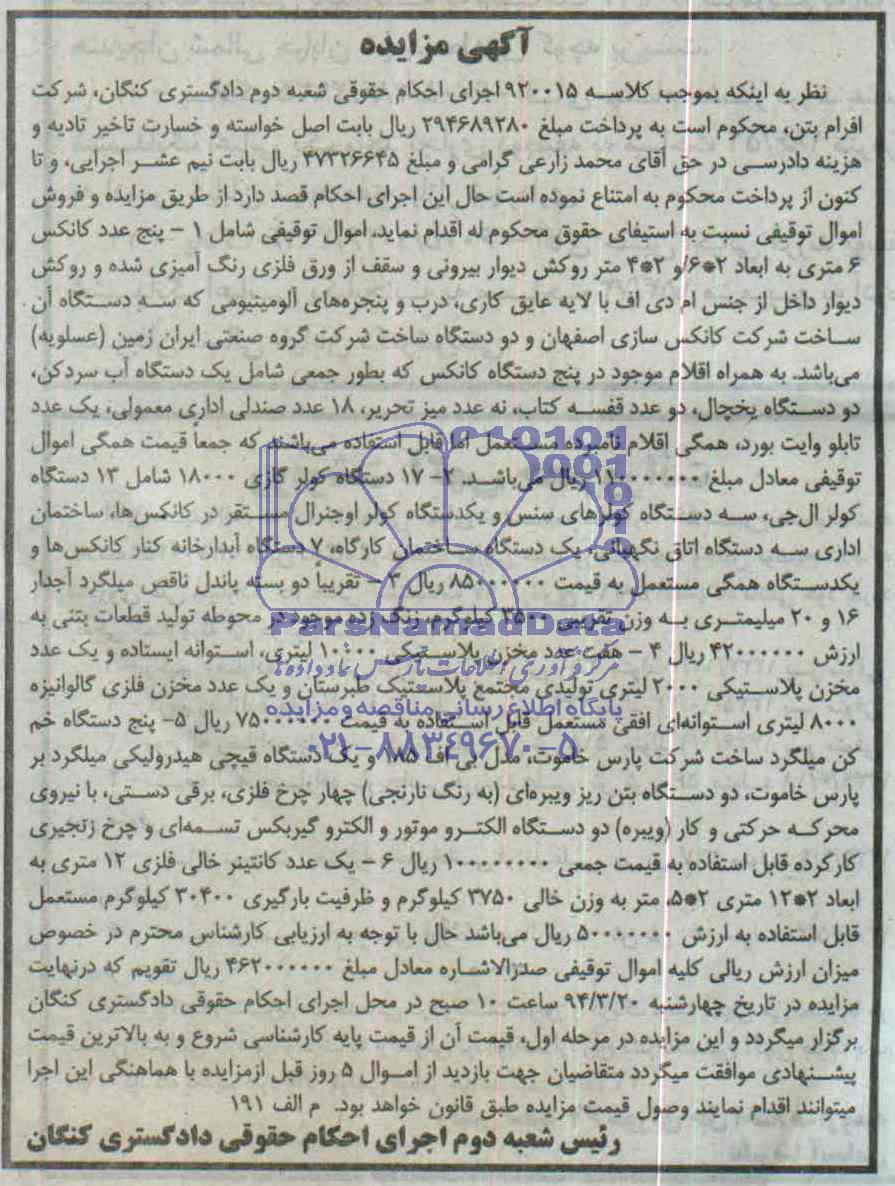 آگهی مزایده
نظر به اینکه بموجب کلاسه ۹۲۰۰۱۵ اجرای احکام حقوقی شعبه دوم دادگستری کنگان، شرکت
افرام بتن، محکوم است به پرداخت مبلغ ۲۹۴۶۸۹۲۸۰ ریال بابت اصل خواسته و خسارت تاخیر تادیه و
هزینه دادرسی در حق آقای محمد زارعی گرامی و مبلغ ۴۷۳۲۶۶۴۵ ریال بابت نیم عشر اجرایی، و تا
کنون از پرداخت محکوم به امتناع نموده است حال این اجرای احکام قصد دارد از طریق مزایده و فروش
اموال توقیفی نسبت به استیفای حقوق محکوم له اقدام نماید، اموال توقیفی شامل ۱ – پنج عدد کانکس
۶ متری به ابعاد ۲*۶/و ۲*۴ متر روکش دیوار بیرونی و سقف از ورق فلزی رنگ آمیزی شده و روکش
دیوار داخل از جنس ام دی اف با لایه عایق کاری، درب و پنجره‌های آلومینیومی که سه دستگاه آن
ساخت شرکت کانکس سازی اصفهان و دو دستگاه ساخت شرکت گروه صنعتی ایران زمین (عسلویه)
می‌باشد. به همراه اقلام موجود در پنج دستگاه کانکس که بطور جمعی شامل یک دستگاه آب سردکن،
دو دستگاه یخچال، دو عدد قفسه کتاب، نه عدد میز تحریر، ۱۸ عدد صندلی اداری معمولی، یک عدد
تابلو وایت بورد، همگی اقلام نامبرده مستعمل اما قابل استفاده می‌باشند که جمعاً قیمت همگی اموال
توقیفی معادل مبلغ ۱۱۰۰۰۰۰۰۰ ریال می‌باشد. ۲- ۱۷ دستگاه کولر گازی ۱۸۰۰۰ شامل ۱۳ دستگاه
کولر ال‌جی، سه دستگاه کولرهای سنس و یکدستگاه کولر اوجنرال مستقر در کانکس‌ها، ساختمان
اداری سه دستگاه اتاق نگهبانی، یک دستگاه ساختمان کارگاه، ۷ دستگاه آبدارخانه کنار کانکس‌ها و
یکدستگاه همگی مستعمل به قیمت ۸۵۰۰۰۰۰۰ ریال ۳ – تقریباً دو بسته باندل ناقص میلگرد آجدار
۱۶ و ۲۰ میلیمتری به وزن تقریبی ۳۵۰۰ کیلوگرم، زنگ زده موجود در محوطه تولید قطعات بتنی به
ارزش ۴۲۰۰۰۰۰۰ ریال ۴ – هفت عدد مخزن پلاستیکی ۱۰۰۰۰ لیتری، استوانه ایستاده و یک عدد
مخزن پلاستیکی ۲۰۰۰ لیتری تولیدی مجتمع پلاستیک طبرستان و یک عدد مخزن فلزی گالوانیزه
۸۰۰۰ لیتری استوانه‌ای افقی مستعمل قابل استفاده به قیمت ۷۵۰۰۰۰۰۰ ریال ۵- پنج دستگاه خم
کن میلگرد ساخت شرکت پارس خاموت، مدل بی اف ۱۸۵ و یک دستگاه قیچی هیدرولیکی میلگرد بر
پارس خاموت، دو دستگاه بتن ریز ویبره‌ای (به رنگ نارنجی) چهار چرخ فلزی، برقی دستی، با نیروی
محرکه حرکتی و کار (ویبره) دو دستگاه الکترو موتور و الکترو گیربکس تسمه‌ای و چرخ زنجیری
کارکرده قابل استفاده به قیمت جمعی ۱۰۰۰۰۰۰۰۰ ریال ۶ – یک عدد کانتینر خالی فلزی ۱۲ متری به
ابعاد ۲*۱۲ متری ۲*۵، متر به وزن خالی ۳۷۵۰ کیلوگرم و ظرفیت بارگیری ۳۰۴۰۰ کیلوگرم مستعمل
قابل استفاده به ارزش ۵۰۰۰۰۰۰۰ ریال می‌باشد حال با توجه به ارزیابی کارشناس محترم در خصوص
میزان ارزش ریالی کلیه اموال توقیفی صدرالاشاره معادل مبلغ ۴۶۲۰۰۰۰۰۰ ریال تقویم که درنهایت
مزایده در تاریخ چهارشنبه ۹۴/۳/۲۰ ساعت ۱۰ صبح در محل اجرای احکام حقوقی دادگستری کنگان
برگزار میگردد و این مزایده در مرحله اول، قیمت آن از قیمت پایه کارشناسی شروع و به بالاترین قیمت
پیشنهادی موافقت میگردد متقاضیان جهت بازدید از اموال ۵ روز قبل ازمزایده با هماهنگی این اجرا
میتوانند اقدام نمایند وصول قیمت مزایده طبق قانون خواهد بود. م الف ۱۹۱
رئیس شعبه دوم اجرای احکام حقوقی دادگستری کنگان
ParsNamadData
مرکز فرآوری اطلاعات پارس نماد داده ها
پایگاه اطلاع رسانی مناقصه و مزایده
۰۲۱-۸۸۳۴۹۶۷۰-۵